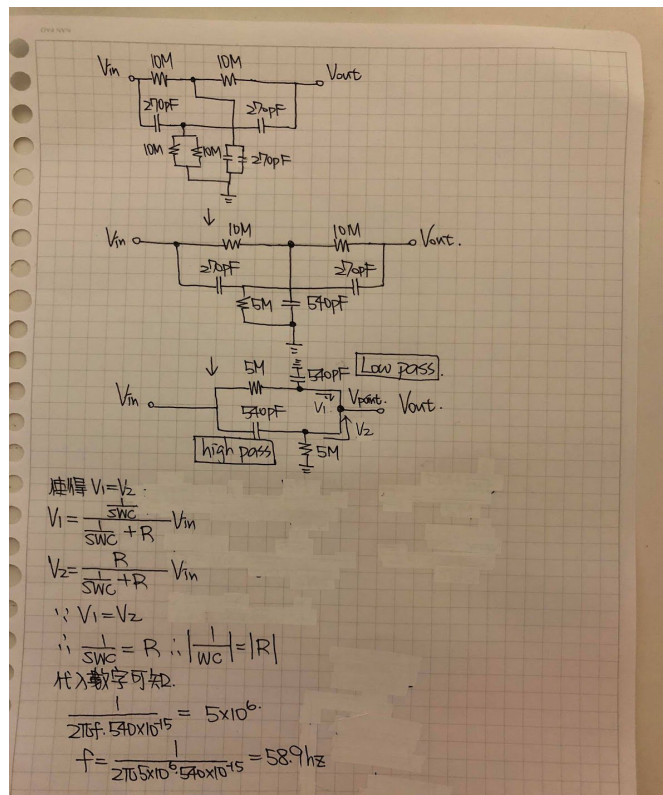 Vin 10M 10M Vout
270pF 270pF
10M 10M 270pF
↓
Vin 10M 10M Vout.
270pF 270pF
5M 540pF
↓
5M 540pF Low pass.
Vin 540pF V1 Vpoint. Vout.
high pass 5M V2
使得 V1=V2.
V1= (1/SWC)/(1/SWC + R) Vin
V2= R/(1/SWC + R) Vin
∵ V1=V2
∴ 1/SWC = R ∴ |1/WC|=|R|
代入數字可知.
1/(2πf·540×10^-15) = 5×10^6.
f= 1/(2π5×10^6·540×10^-15) = 58.9hz